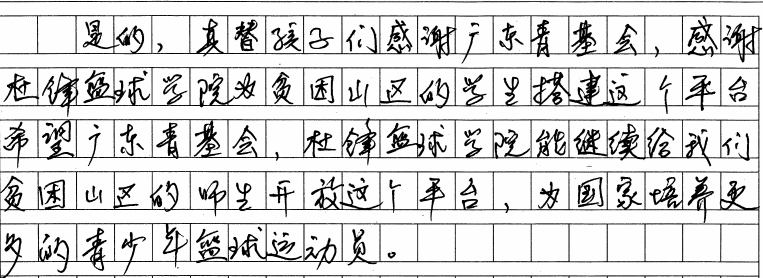 是的，真替孩子们感谢广东青基会，感谢
杜锋篮球学院为贫困山区的学生搭建这个平台
希望广东青基会，杜锋篮球学院能继续给我们
贫困山区的师生开放这个平台，为国家培养更
多的青少年篮球运动员。